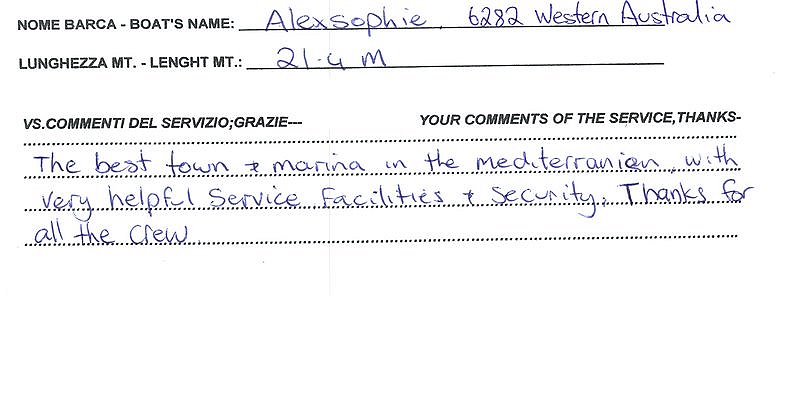 NOME BARCA - BOAT'S NAME: Alexsophie. 6282 Western Australia
LUNGHEZZA MT. - LENGHT MT.: 21.4 M
VS.COMMENTI DEL SERVIZIO;GRAZIE--- YOUR COMMENTS OF THE SERVICE,THANKS-
The best town & marina in the mediterranien, with
very helpful Service Facilities & Security. Thanks for
all the crew.